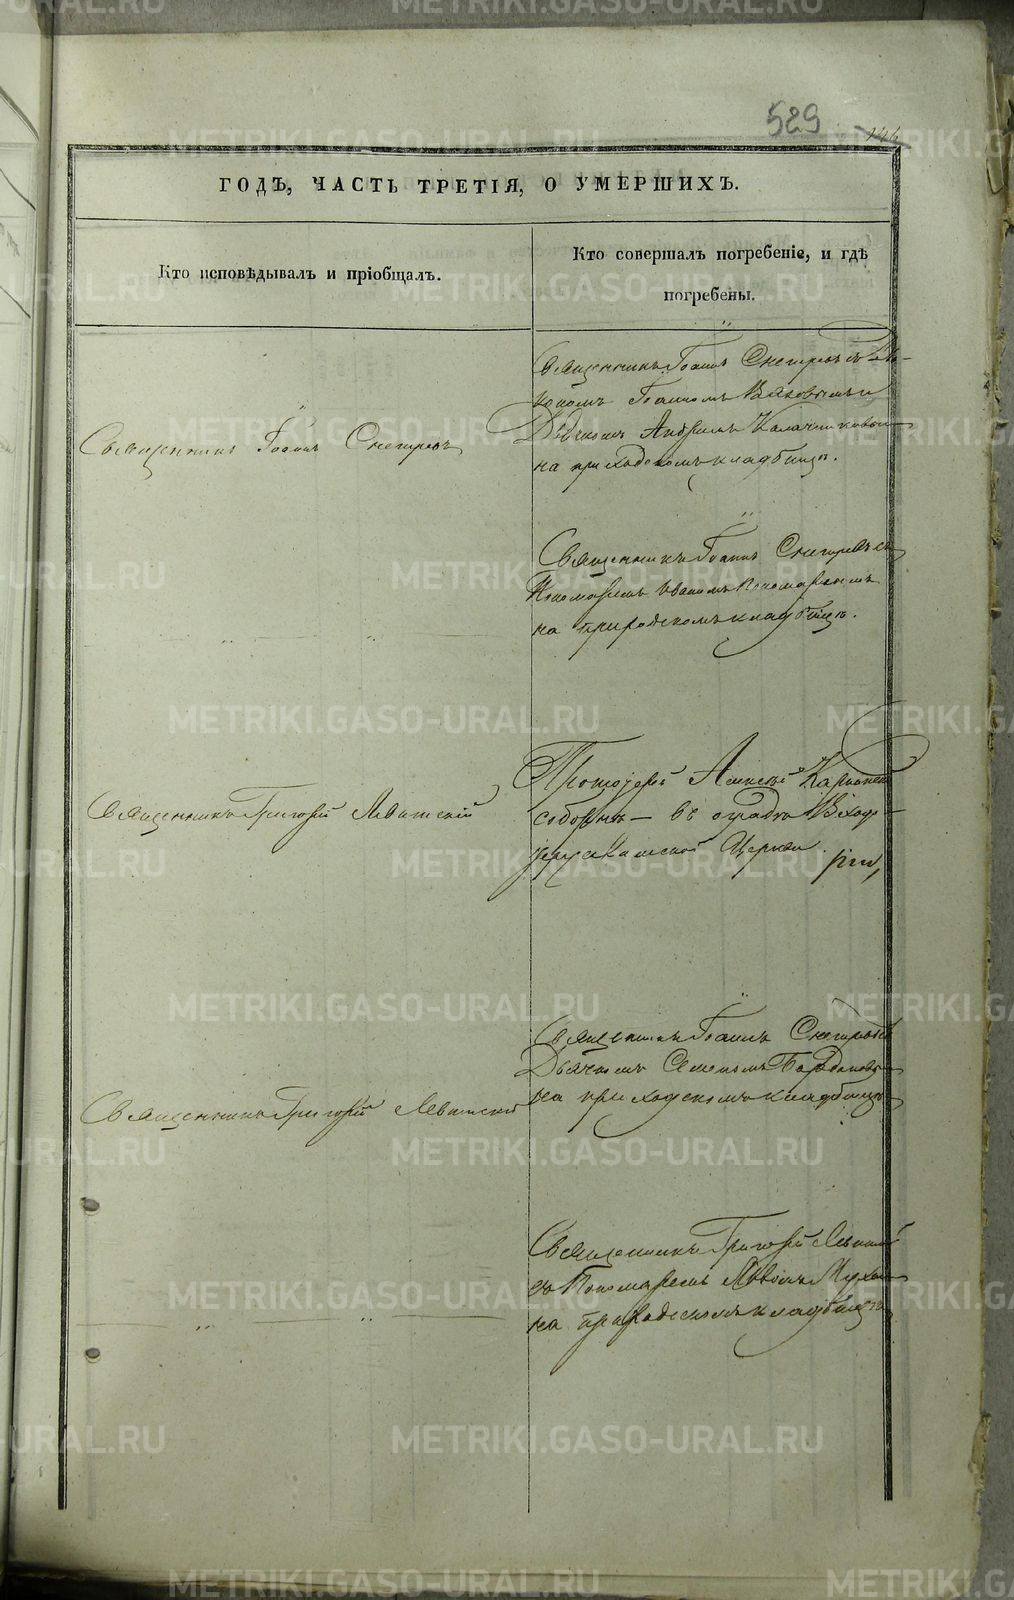 529
146
ГОДЪ, ЧАСТЬ ТРЕТІЯ, О УМЕРШИХЪ.
Кто исповѣдывалъ и пріобщалъ.
Кто совершалъ погребеніе, и гдѣ
погребены.
Священникъ Іоаннъ Снегиревъ
Священникъ Іоаннъ Снегиревъ съ Діа-
кономъ Іоанномъ
Дьячкомъ Андреемъ Калачниковымъ
на приходскомъ кладбищѣ.
Священникъ Іоаннъ Снегиревъ съ
Пономаремъ Иваномъ Пономаревымъ
на приходскомъ кладбищѣ.
Священникъ Григорій Левитскій
Протоіерей Алексѣй Карпинскій
соборнѣ — въ оградѣ Входо-
іерусалимской Церкви.
Священникъ Григорій Левитскій
Священникъ Іоаннъ Снегиревъ съ
Дьячкомъ Семеномъ
на приходскомъ кладбищѣ
Священникъ Григорій Левитскій
съ Пономаремъ
на приходскомъ кладбищѣ
METRIKI.GASO-URAL.RU